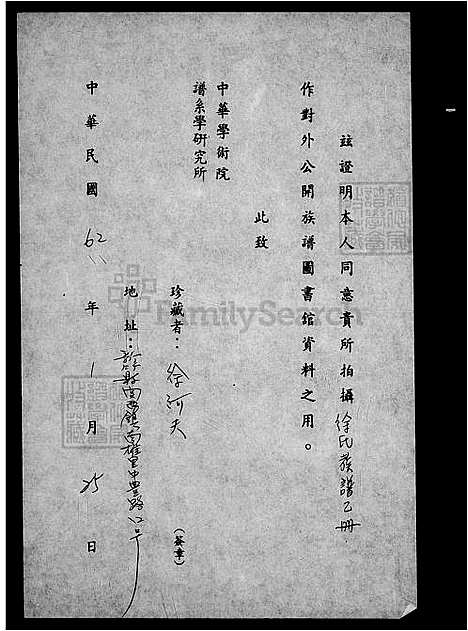 茲證明本人同意貴所拍攝徐氏族譜乙冊
作對外公開族譜圖書館資料之用。
此致
中華學術院
譜系學研究所
珍藏者：徐河夫
(簽章)
地址：縣西鎮南雄里中豐路12号
中華民國62年1月25日
FamilySearch